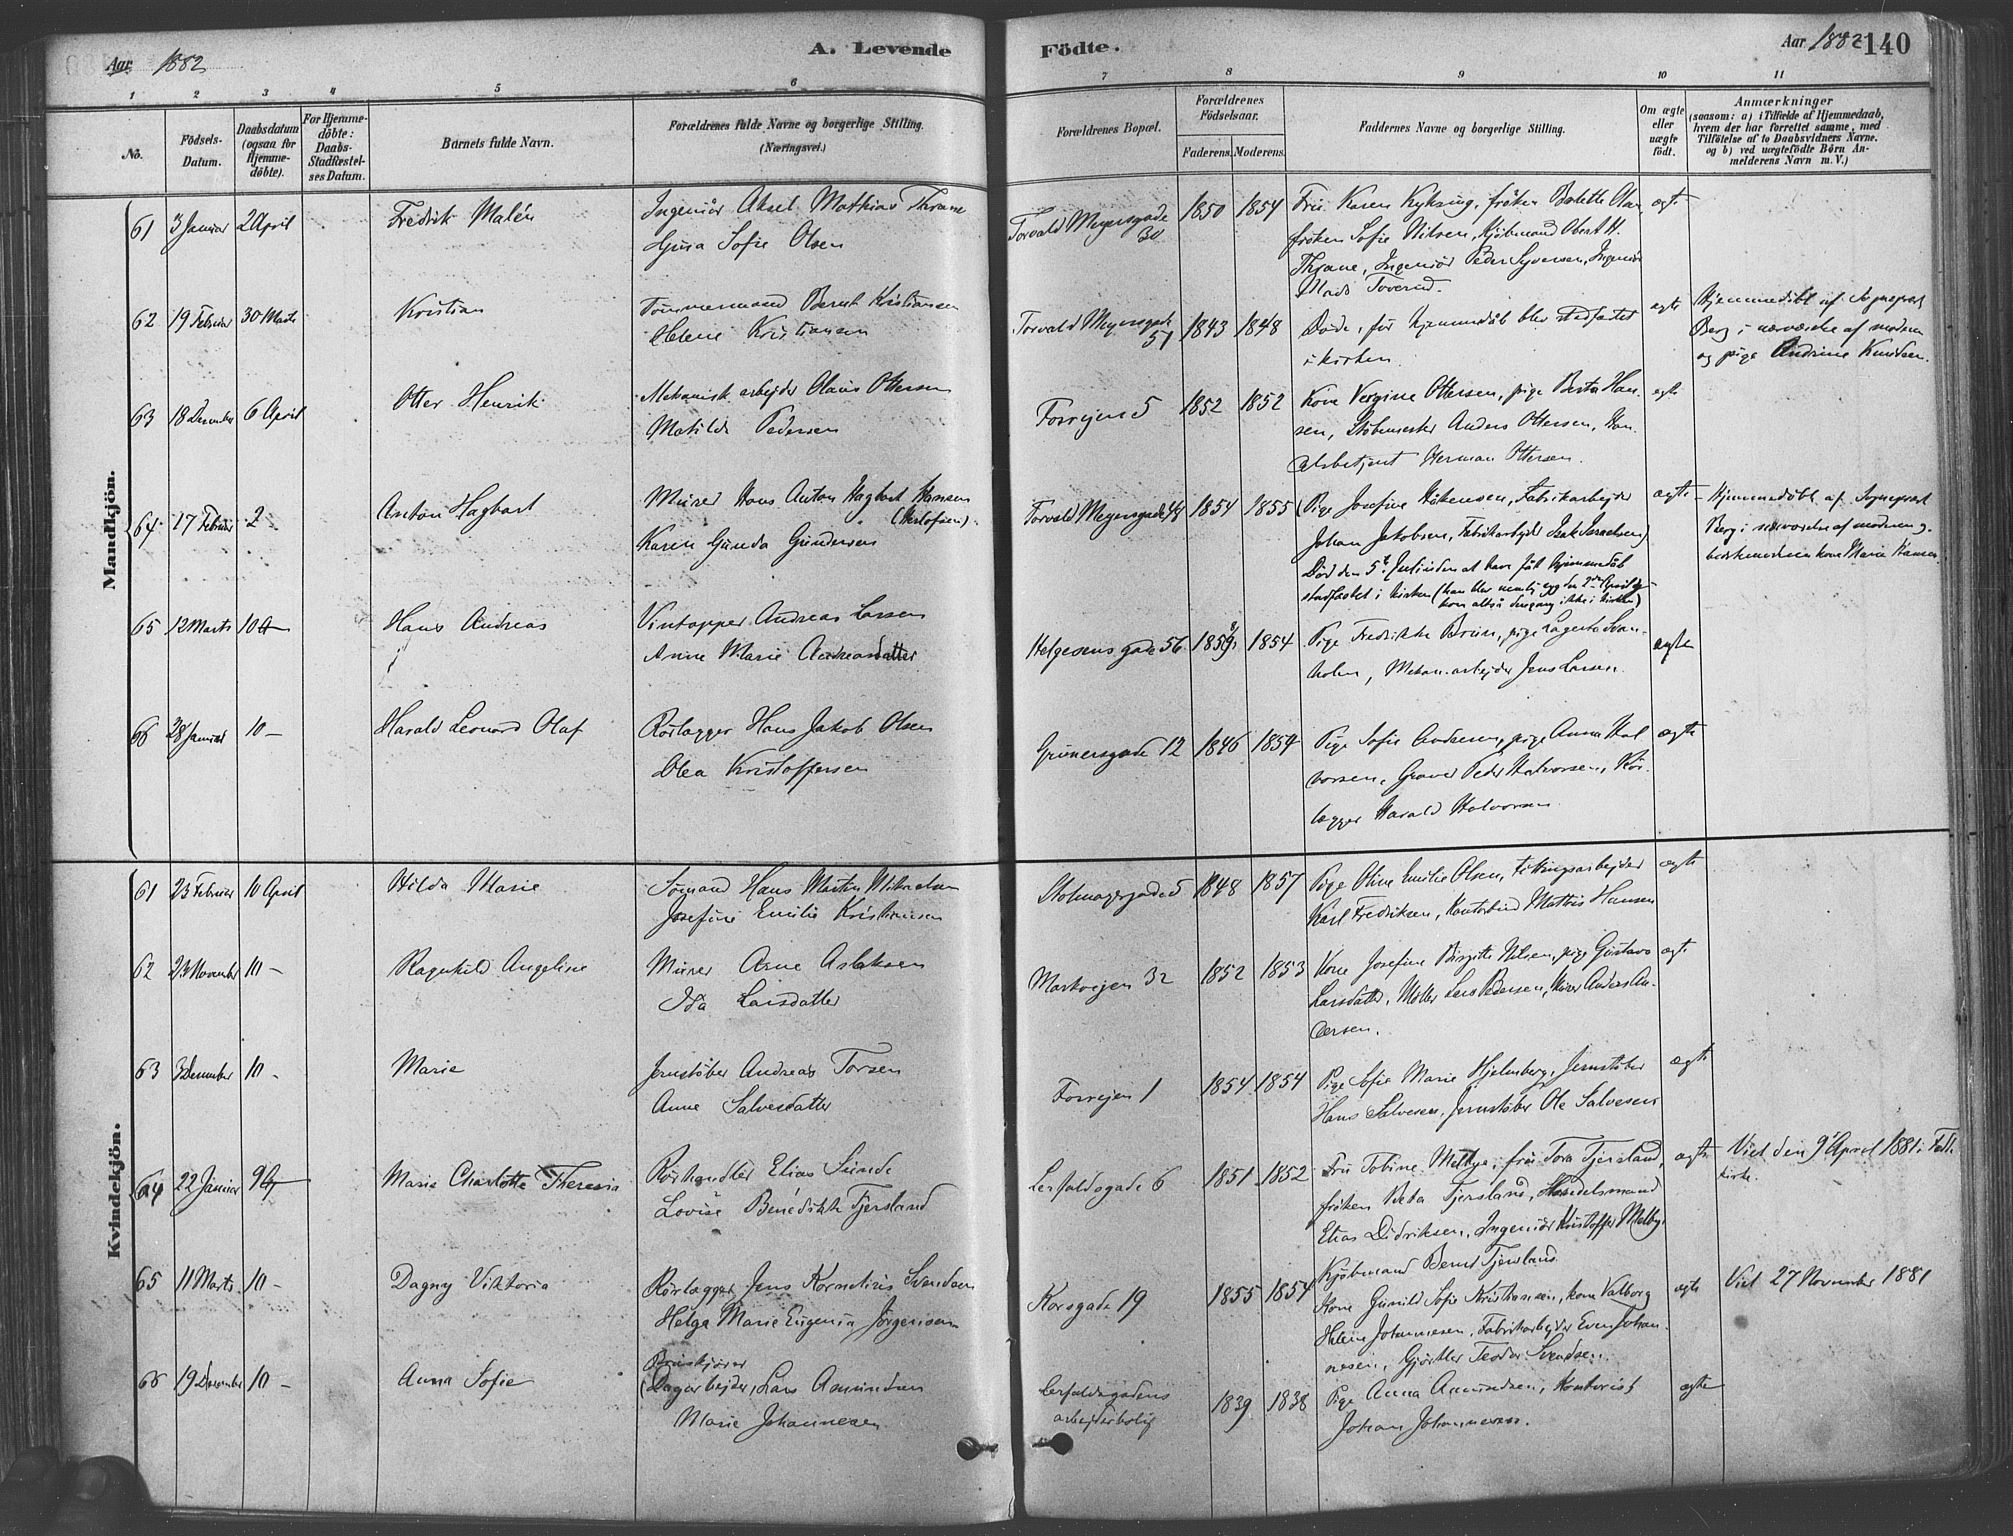 Aar 1882
A. Levende
Födte.
Aar 1882
140
1 2 3 4 5 6 7 8 9 10 11
No.
Födsels-
Datum.
Daabsdatum
(ogsaa for
Hjemme-
döbte).
For Hjemme-
döbte:
Daabs-
Stadfæstel-
ses Datum.
Barnets fulde Navn.
Forældrenes fulde Navne og borgerlige Stilling.
(Næringsvei.)
Forældrenes Bopæl.
Forældrenes
Födselsaar.
Faderens. Moderens.
Faddernes Navne og borgerlige Stilling.
Om ægte
eller
uægte
födt.
Anmærkninger
(saasom: a) i Tilfælde af Hjemmedaab,
hvem der har forrettet samme, med
Tilföielse af to Daabsvidners Navne.
og b) ved uægtefödte Börn An-
melderens Navn m. V.)
Mandkjön.
61 3 Januar 2 April
Fredrik Malén
Ingeniør Aksel Mathias Thrane
Sofie Olsen
Torvald Meyersgade
30
1850 1854
Fru Karen frøken
frøken Sofie Nilsen, Kjøbmand Obert H.
Thrane, Ingeniør Peder Syversen, Ingeniør
Mads
ægte
62 19 Februar 30 Marts
Kristian
Tømmermand Bernt Kristiansen
Helene Kristiansen
Torvald Meyersgade
51
1843 1848
Døde, før hjemmedåb blev stadfæstet
i kirken.
ægte
Hjemmedøbt af Sogneprest
Berg i nærværelse af moderen
og pige Andrine Knudsen.
63 18 Desember 6 April
Otter Henrik
Mekanisk arbejder Olaus Ottersen
Matilde Pedersen
Fossvejen 5
1852 1852
Kone Vergine Ottersen, pige Berta Han-
sen, Støbemester Anders Ottersen, Han-
delsbetjent Herman Ottersen.
ægte
64 17 Februar 2
Anton Hagbart
Murer Hans Anton Hagbart Hansen
Karen Gunda Gundersen
Torvald Meyersgade 44
1854 1855
(Pige Josefine Håkensen, Fabrikarbejder
Johan Jakobsen, Fabrikarbejder Isak Israelsen)
Død den 5te Juli uden at have fåt hjemmedåb
stadfæstet i kirken (han blev nemlig syg den 2den April og
kom altså dengang ikke i kirken)
ægte
Hjemmedøbt af Sogneprest
Berg i nærværelse af moderen og
kone Marie Hansen
65 12 Marts 10
Hans Andreas
Vintapper Andreas Larsen
Anne Marie Andreasdatter
Helgesens gade 56
1859 1854
Pige Fredrikke Bruun, pige Lagerta Svan-
holm, Mekan. arbejder Jens Larsen.
ægte
66 28 Januar 10 —
Harald Leonard Olaf
Rørlægger Hans Jakob Olsen
Olea Kristoffersen
Grünersgade 12
1846 1854
Pige Sofie Andersen, pige Anna Hal-
vorsen, Graver Peder Halvorsen, Rør-
lægger Harald Halvorsen
ægte
Kvindekjön.
61 23 Februar 10 April
Hilda Marie
Sømand Hans Martin Mikaelsen
Josefine Emilie Kristiansen
Stolmagergade 5
1848 1857
Pige Oline Emilie Olsen,
Karl Fredriksen, Kontorbud Mattis Hansen
ægte
62 23 November 10 —
Ragnhild Angeline
Murer Arne Aslaksen
Ida Larsdatter
Markvejen 32
1852 1853
Kone Josefine Birgitte Nilsen, pige Gustava
Larsdatter, Møller Lars Pedersen, Murer Anders An-
dersen.
ægte
63 3 Desember 10 -
Marie
Jernstøber Andreas Torsen
Anne Salvesdatter
Fossvejen 1
1854 1854
Pige Sofie Marie Hjelmberg, Jernstøber
Hans Salvesen, Jernstøber Ole Salvesen
ægte
64 22 Januar 9
Marie Charlotte Theresia
Rørhandler Elias Sunde
Lovise Benedikte Fjersland
Lerfaldsgade 6
1851 1852
Fru Tobine Melbye, fru Tora Tjersland,
frøken Beta Tjersland, Handelsmand
Elias Didriksen, Ingeniør Kristoffer Melby,
Kjøbmand Bernt Tjersland
ægte
Viet den 9de April 1881 i
kirke.
65 11 Marts 10 —
Dagny Viktoria
Rørlægger Jens Kornelius Svendsen
Helga Marie Eugenia Jørgensen
Korsgade 19
1855 1854
Kone Gunild Sofie Kristiansen, kone Valborg
Helene Johannesen, Fabrikarbejder Even Johan-
nesen, Gjørtler Teodor Svendsen.
ægte
Viet 27 November 1881
66 19 Desember 10 —
Anna Sofie
(Dagarbejder, Lars Amundsen
Marie Johannesen
Lerfaldsgadens
arbejderbolig
1839 1838
Pige Anna Amundsen, Kontorist
Johan Johannesen.
ægte